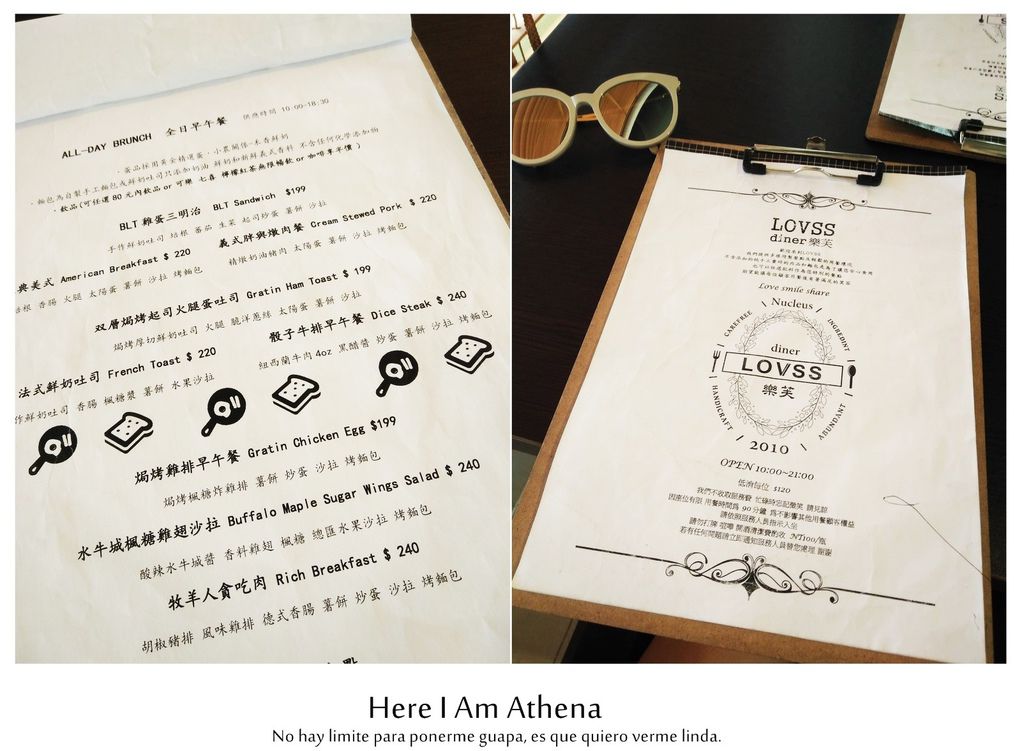 ALL-DAY BRUNCH 全日早午餐 供應時間 10:00-18:30
BLT 雞蛋三明治 BLT Sandwich $199
手作鮮奶吐司 培根 番茄 生菜 起司炒蛋 薯餅 沙拉
典美式 American Breakfast $ 220
培根 香腸 火腿 太陽蛋 薯餅 沙拉 烤麵包
義式胖與燉肉餐 Cream Stewed Pork $ 220
精燉奶油豬肉 太陽蛋 薯餅 沙拉 烤麵包
双層焗烤起司火腿蛋吐司 Gratin Ham Toast $ 199
焗烤厚切鮮奶吐司 火腿 脆洋蔥絲 太陽蛋 薯餅 沙拉
法式鮮奶吐司 French Toast $ 220
作鮮奶吐司 香腸 楓糖漿 薯餅 水果沙拉
骰子牛排早午餐 Dice Steak $ 240
紐西蘭牛肉 4oz 黑醋醬 炒蛋 薯餅 沙拉 烤麵包
焗烤雞排早午餐 Gratin Chicken Egg $199
焗烤楓糖炸雞排 薯餅 炒蛋 沙拉 烤麵包
水牛城楓糖雞翅沙拉 Buffalo Maple Sugar Wings Salad $ 240
酸辣水牛城醬 香料雞翅 楓糖 總匯水果沙拉 烤麵包
牧羊人貪吃肉 Rich Breakfast $ 240
胡椒豬排 風味雞排 德式香腸 薯餅 炒蛋 沙拉 烤麵包
LOVSS
diner 樂芙
Love smile share
Nucleus
CAREFREE
INGREDINT
diner
LOVSS
樂芙
HANDICRAFT
ABUNDANT
2010
OPEN 10:00~21:00
低消每位 $120
我們不收取服務費 忙碌時忘記微笑 請見諒
因座位有限 用餐時間爲 90 分鐘 爲不影響其他用餐顧客權益
請依照服務人員指示入坐
請勿打牌 喧嘩 開酒清潔費酌收 NT100/瓶
若有任何問題請立即通知服務人員替您處理 謝謝
Here I Am Athena
No hay limite para ponerme guapa, es que quiero verme linda.